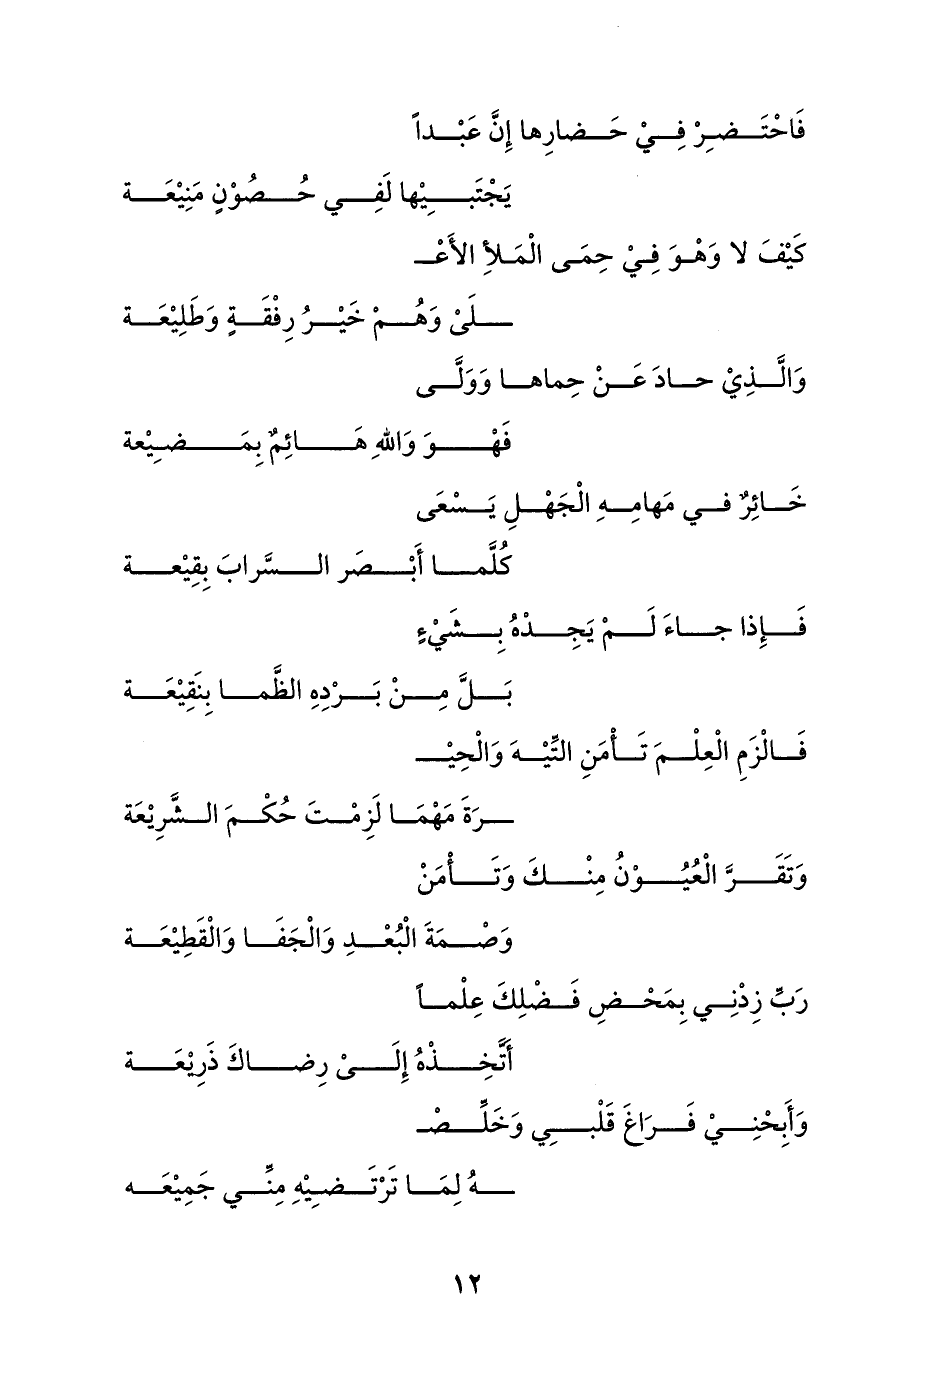 فَاحْتَضِرْ فِيْ حَضارِها إِنَّ عَبْداً
يَجْتَبِيْها لَفِي حُصُوْنٍ مَنِيْعَة
كَيْفَ لا وَهْوَ فِيْ حِمَى الْمَلأِ الأَعْـ
ـلَىْ وَهُمْ خَيْرُ رِفْقَةٍ وَطَلِيْعَة
وَالَّذِيْ حادَ عَنْ حِماها وَوَلَّى
فَهْوَ وَاللهِ هَائِمٌ بِمَضِيْعة
حَائِرٌ في مَهامِهِ الْجَهْلِ يَسْعَى
كُلَّما أَبْصَر السَّرابَ بِقِيْعة
فَإِذا جاءَ لَمْ يَجِدْهُ بِشَيْءٍ
بَلَّ مِنْ بَرْدِهِ الظَّما بِنَقِيْعَة
فَالْزَمِ الْعِلْمَ تَأْمَنِ التِّيْهَ وَالْحِيْـ
ـرَةَ مَهْمَا لَزِمْتَ حُكْمَ الشَّرِيْعَة
وَتَقَرَّ الْعُيُوْنُ مِنْكَ وَتَأْمَنْ
وَصْمَةَ الْبُعْدِ وَالْجَفَا وَالْقَطِيْعَة
رَبِّ زِدْنِي بِمَحْضِ فَضْلِكَ عِلْماً
أَتَّخِذْهُ إِلَىْ رِضاكَ ذَرِيْعَة
وَأَبِحْنِيْ فَرَاغَ قَلْبِي وَخَلِّصْـ
ـهُ لِمَا تَرْتَضِيْهِ مِنِّي جَمِيْعَه
١٢